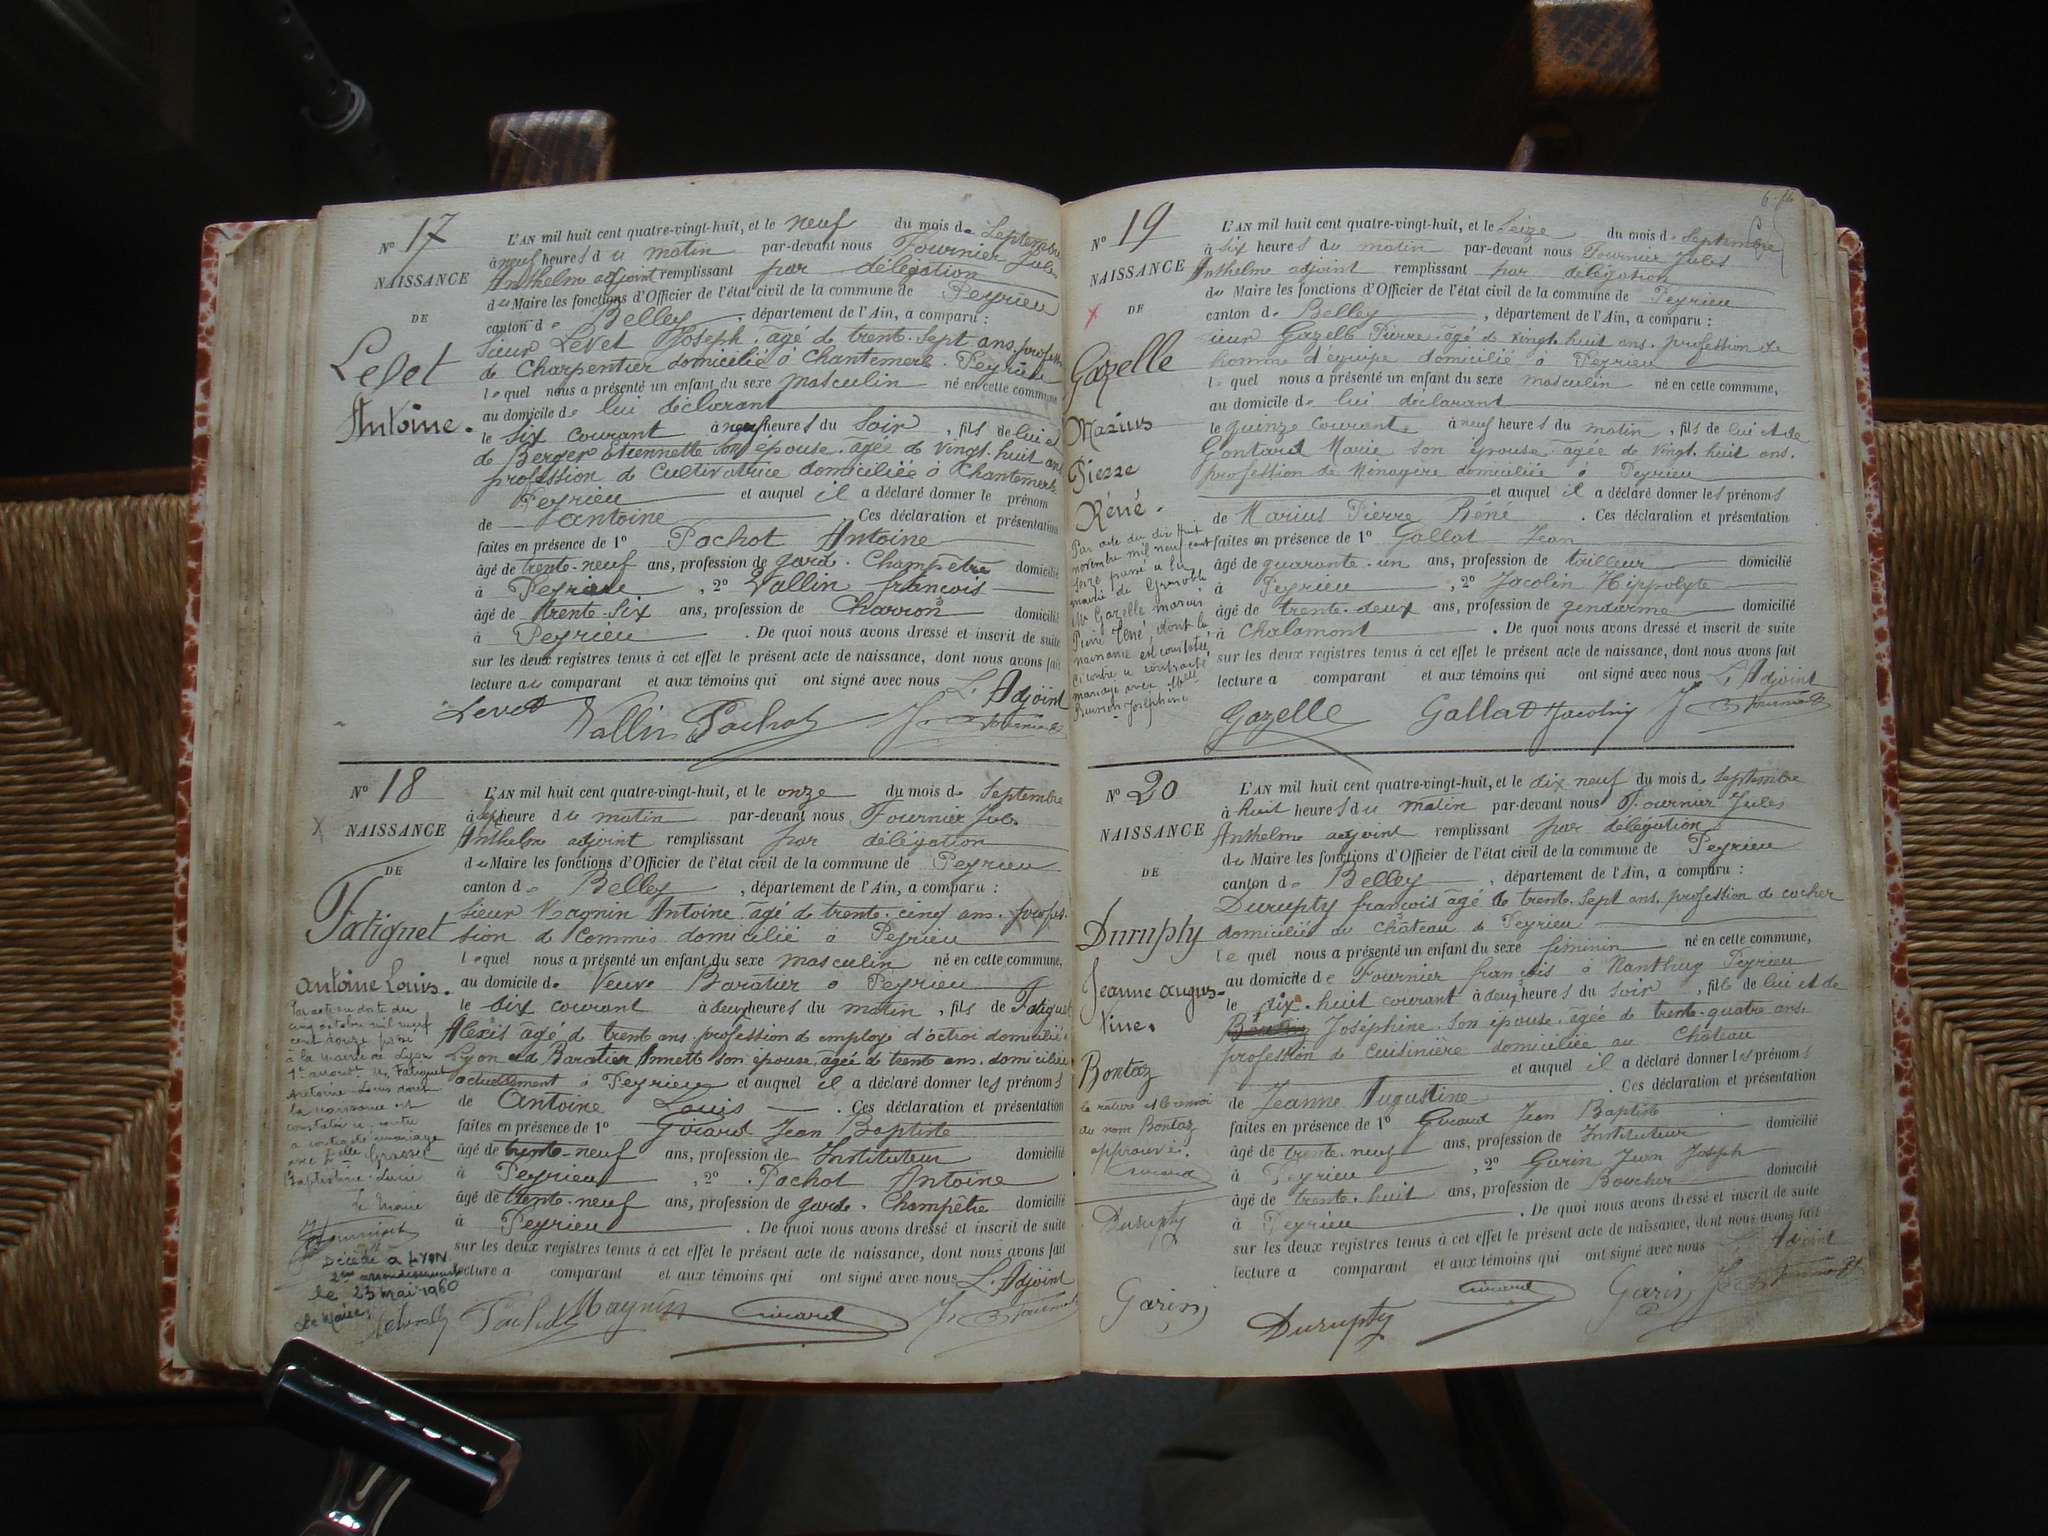 Nº 17
NAISSANCE
DE
Levet
Antoine.
L'AN mil huit cent quatre-vingt-huit, et le neuf du mois de Septembre
à neuf heures du matin par-devant nous Fournier Jules
Anthelme adjoint remplissant par délégation
du Maire les fonctions d'Officier de l'état civil de la commune de Peyrieu
canton de Belley, département de l'Ain, a comparu :
Sieur Levet Joseph âgé de trente-sept ans, profession
de Charpentier domicilié à Chantemerle Peyrieu
lequel nous a présenté un enfant du sexe masculin né en cette commune,
au domicile de lui déclarant
le six courant à neuf heures du soir, fils de lui et
de Berger Etiennette son épouse âgée de vingt-huit ans
profession de Cultivatrice domiciliée à Chantemerle
Peyrieu et auquel il a déclaré donner le prénom
de Antoine. Ces déclaration et présentation
faites en présence de 1º Pochot Antoine
âgé de trente-neuf ans, profession de garde-Champêtre domicilié
à Peyrieu, 2º Vallin françois
âgé de trente-six ans, profession de Charron domicilié
à Peyrieu. De quoi nous avons dressé et inscrit de suite
sur les deux registres tenus à cet effet le présent acte de naissance, dont nous avons fait
lecture au comparant et aux témoins qui ont signé avec nous L'Adjoint
Levet Vallin Pochot J Fournier
Nº 18
NAISSANCE
DE
Fatignet
Antoine Louis.
Par acte en date du
cinq octobre mil neuf
cent douze passé
à la mairie de Lyon
1er arrondt Mr Fatignet
Antoine Louis dont
la naissance est
constatée ci-contre
a contracté mariage
avec Delle Grasset
Baptistine Lucie
Le Maire
Décédé à LYON
2ème arrondissement
le 23 mai 1960
Le Maire
L'AN mil huit cent quatre-vingt-huit, et le onze du mois de Septembre
à sept heure du matin par-devant nous Fournier Jules
Anthelme adjoint remplissant par délégation
du Maire les fonctions d'Officier de l'état civil de la commune de Peyrieu
canton de Belley, département de l'Ain, a comparu :
Sieur Magnin Antoine âgé de trente-cinq ans, profes-
sion de Commis domicilié à Peyrieu
lequel nous a présenté un enfant du sexe masculin né en cette commune,
au domicile de Veuve Baratier à Peyrieu
le dix courant à deux heures du matin, fils de Fatignet
Alexis âgé de trente ans profession de employé d'octroi domicilié à
Lyon et de Baratier Annette son épouse âgée de trente ans domiciliée
actuellement à Peyrieu et auquel il a déclaré donner les prénoms
de Antoine Louis. Ces déclaration et présentation
faites en présence de 1º Girard Jean Baptiste
âgé de trente-neuf ans, profession de Instituteur domicilié
à Peyrieu, 2º Pochot Antoine
âgé de trente-neuf ans, profession de garde-Champêtre domicilié
à Peyrieu. De quoi nous avons dressé et inscrit de suite
sur les deux registres tenus à cet effet le présent acte de naissance, dont nous avons fait
lecture a comparant et aux témoins qui ont signé avec nous L'Adjoint
Pochot Magnin Girard J Fournier
6-16
Nº 19
NAISSANCE
DE
Gazelle
Marius
Pierre
Réné.
Par acte du dix huit
novembre mil neuf cent
seize passé à la
mairie de Grenoble
Mr Gazelle Marius
Pierre Réné, dont la
naissance est constatée
ci contre a contracté
mariage avec Melle
Joséphine
L'AN mil huit cent quatre-vingt-huit, et le Seize du mois de Septembre
à six heures du matin par-devant nous Fournier Jules
Anthelme adjoint remplissant par délégation
du Maire les fonctions d'Officier de l'état civil de la commune de Peyrieu
canton de Belley, département de l'Ain, a comparu :
Sieur Gazelle Pierre âgé de vingt-huit ans, profession de
homme d'équipe domicilié à Peyrieu
lequel nous a présenté un enfant du sexe masculin né en cette commune,
au domicile de lui déclarant
le quinze courant à neuf heures du matin, fils de lui et de
Gontard Marie son épouse âgée de vingt-huit ans.
profession de Ménagère domiciliée à Peyrieu
et auquel il a déclaré donner les prénoms
de Marius Pierre Réné. Ces déclaration et présentation
faites en présence de 1º Gallat Jean
âgé de quarante-un ans, profession de tailleur domicilié
à Peyrieu, 2º Jacolin Hippolyte
âgé de trente-deux ans, profession de gendarme domicilié
à Chalamont. De quoi nous avons dressé et inscrit de suite
sur les deux registres tenus à cet effet le présent acte de naissance, dont nous avons fait
lecture a comparant et aux témoins qui ont signé avec nous L'Adjoint
Gazelle Gallat Jacolin J Fournier
Nº 20
NAISSANCE
DE
Durupty
Jeanne augus-
tine.
Bontaz
la rature et le renvoi
du nom Bontaz
approuvés.
Girard
Durupty
Garin
L'AN mil huit cent quatre-vingt-huit, et le dix neuf du mois de Septembre
à huit heures du matin par-devant nous Fournier Jules
Anthelme adjoint remplissant par délégation
du Maire les fonctions d'Officier de l'état civil de la commune de Peyrieu
canton de Belley, département de l'Ain, a comparu :
Durupty françois âgé de trente-sept ans, profession de cocher
domicilié au Château de Peyrieu
lequel nous a présenté un enfant du sexe féminin né en cette commune,
au domicile de Fournier françois à Nanthuy Peyrieu
le dix-huit courant à deux heures du soir, fille de lui et de
Joséphine son épouse âgée de trente-quatre ans.
profession de Cuisinière domiciliée au Château
et auquel il a déclaré donner les prénoms
de Jeanne Augustine. Ces déclaration et présentation
faites en présence de 1º Girard Jean Baptiste
âgé de trente-neuf ans, profession de Instituteur domicilié
à Peyrieu, 2º Garin Jean Joseph
âgé de trente-huit ans, profession de Boucher domicilié
à Peyrieu. De quoi nous avons dressé et inscrit de suite
sur les deux registres tenus à cet effet le présent acte de naissance, dont nous avons fait
lecture a comparant et aux témoins qui ont signé avec nous L'Adjoint
Durupty Girard Garin J Fournier